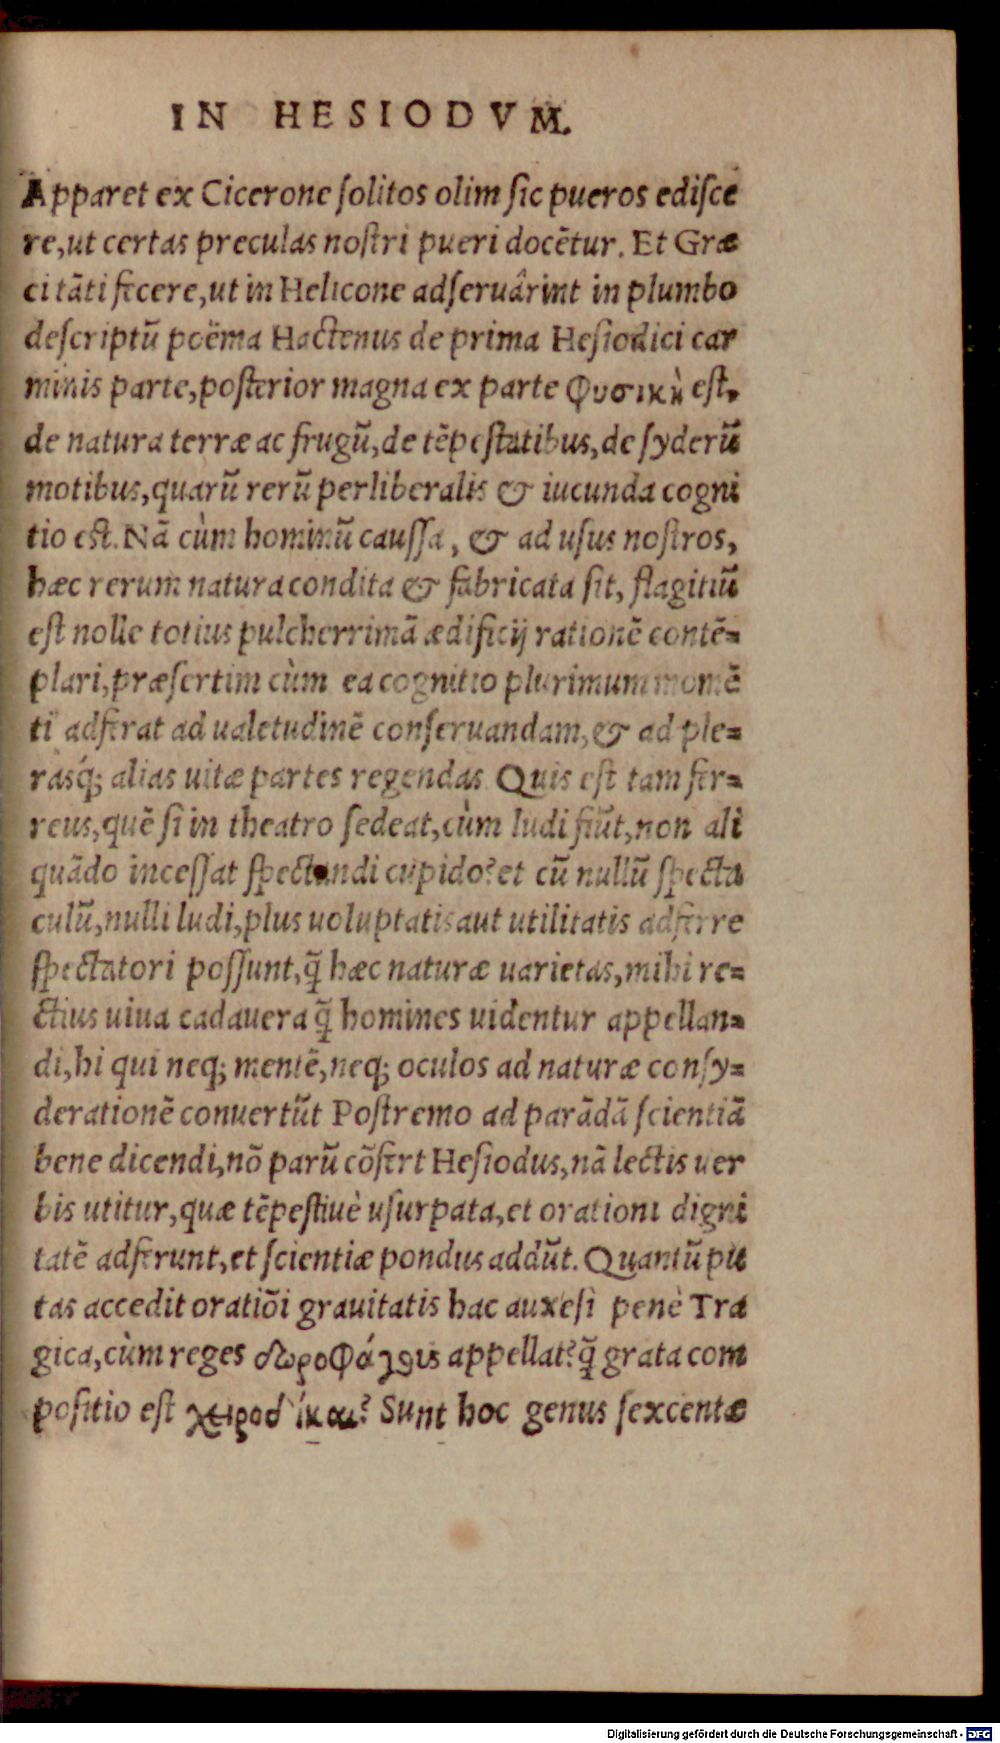 IN HESIODVM.
Apparet ex Cicerone ſolitos olim ſic pueros ediſce
re,ut certas preculas noſtri pueri docētur. Et Græ
ci tāti fecere,ut in Helicone adſeruârint in plumbo
deſcriptū poëma Hactenus de prima Heſiodici car
minis parte,poſterior magna ex parte φυσικὴ eſt,
de natura terræ ac frugū,de tēpeſtatibus,de ſyderū
motibus,quarū rerū perliberalis & iucunda cogni
tio eſt. Nā cùm hominū cauſſa, & ad uſus noſtros,
hæc rerum natura condita & fabricata ſit, flagitiū
eſt nolle totius pulcherrimā ædificij rationē contē=
plari,præſertim cùm ea cognitio plurimum momē
ti adferat ad ualetudinē conſeruandam,& ad ple=
rasq́; alias uitæ partes regendas Quis eſt tam fer=
reus,quē ſi in theatro ſedeat,cùm ludi fiūt,non ali
quādo inceſſat ſpectandi cupido? et cū nullū ſpecta
culū,nulli ludi,plus uoluptatis aut utilitatis adferre
ſpectatori poſſunt,q̃ hæc naturæ uarietas,mihi re=
ctius uiua cadauera q̃ homines uidentur appellan=
di,hi qui neq; mentē,neq; oculos ad naturæ conſy=
derationē conuertūt Poſtremo ad parādā ſcientiā
bene dicendi,nō parū cōfert Heſiodus,nā lectis uer
bis utitur,quæ tēpeſtiuè uſurpata,et orationi digni
tatē adferunt,et ſcientiæ pondus addūt. Quantū pu
tas accedit oratiōi grauitatis hac auxeſi penè Tra
gica,cùm reges δωροφάγους appellat? q̃ grata com
poſitio eſt χειροδίκαι? Sunt hoc genus ſexcentæ
Digitalisierung gefördert durch die Deutsche Forschungsgemeinschaft - DFG